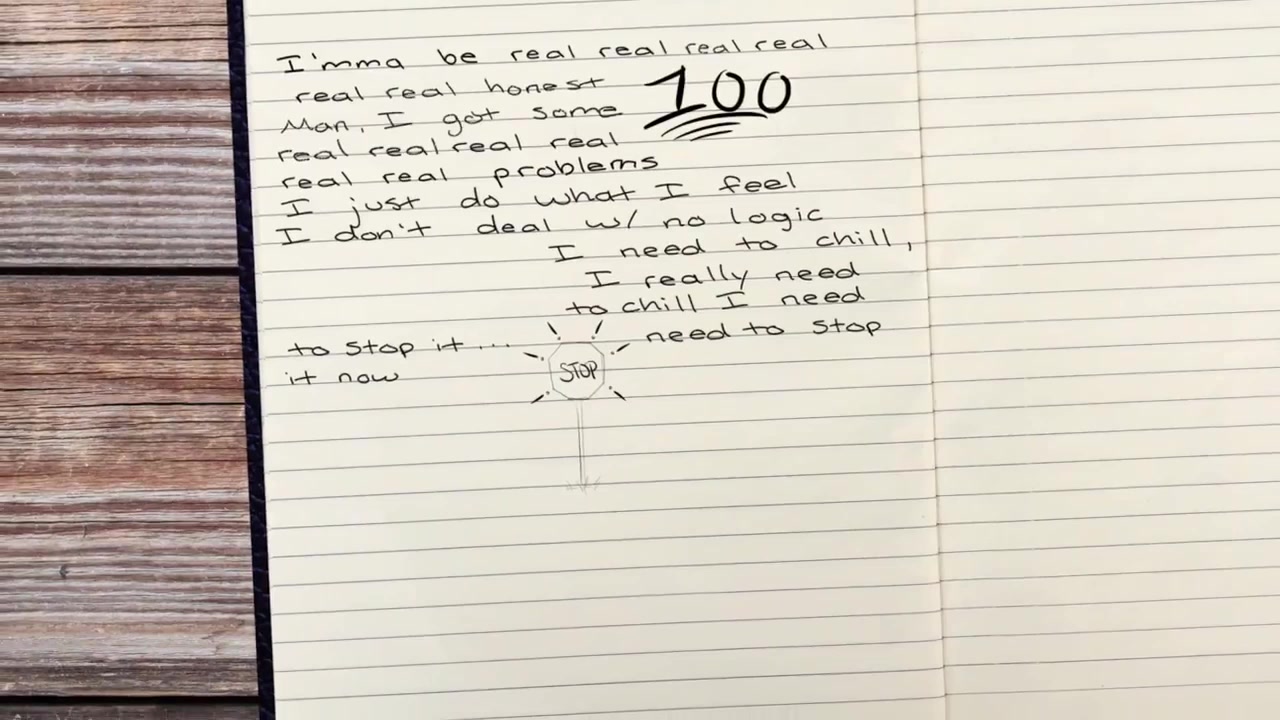 I'mma be real real real real
real real honest
100
Man, I got some
real real real real
real real problems
I just do what I feel
I don't deal w/ no logic
I need to chill,
I really need
to chill I need
need to stop
to stop it...
it now
STOP